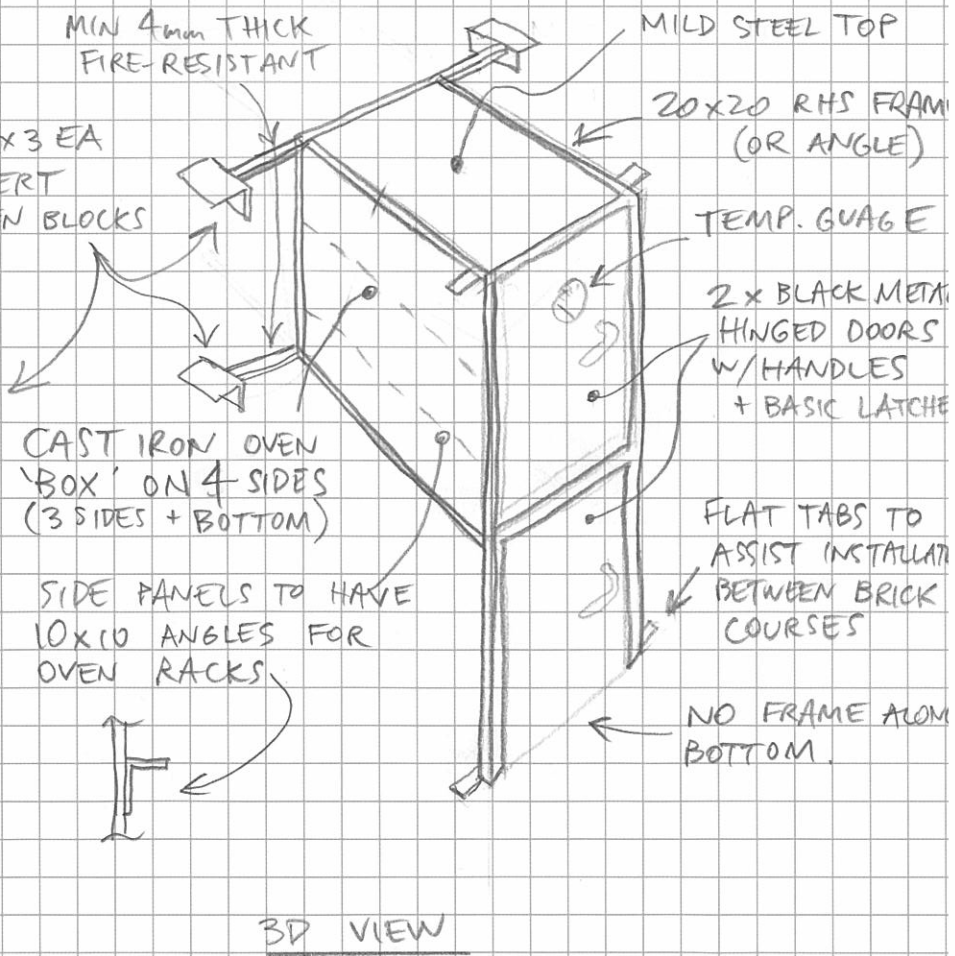 MIN 4mm THICK
FIRE-RESISTANT
MILD STEEL TOP
20x20 RHS FRAM
(OR ANGLE)
x3 EA
ERT
N BLOCKS
TEMP. GUAGE
2 x BLACK META
HINGED DOORS
W/HANDLES
+ BASIC LATCHE
CAST IRON OVEN
'BOX' ON 4 SIDES
(3 SIDES + BOTTOM)
FLAT TABS TO
ASSIST INSTALLAT
BETWEEN BRICK
COURSES
SIDE PANELS TO HAVE
10x10 ANGLES FOR
OVEN RACKS
NO FRAME ALON
BOTTOM.
3D VIEW